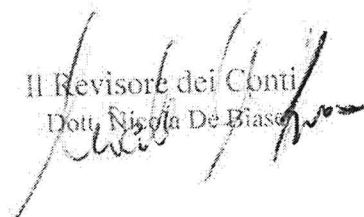 Il Revisore dei Conti
Dott. Nicola De Biase